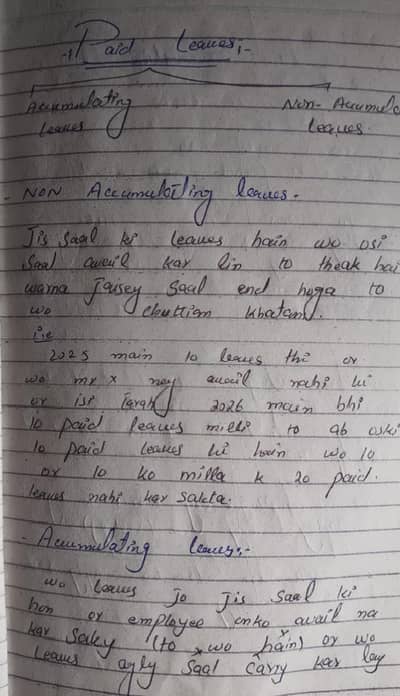 Paid Leaves:-
Accumulating Non-Accumula
leaves leaves.
- NON Accumulating leaves.
Jis saal ki leaves hain wo osi
saal avail kar lin to theak hai
warna jaisey saal end hoga to
wo chuttian khatam.
i.e
2025 main 10 leaves thi or
wo mr x ney avail nahi ki
or isi tarah 2026 main bhi
10 paid leaves milli to ab oski
10 paid leaves hi hain wo 10
or 10 ko milla k 20 paid.
leaves nahi kar sakta.
- Accumulating leaves:-
wo leaves jo jis saal ki
hon or employee onko avail na
kar saky (to wo hain) or wo
leaves agly saal carry kar lay